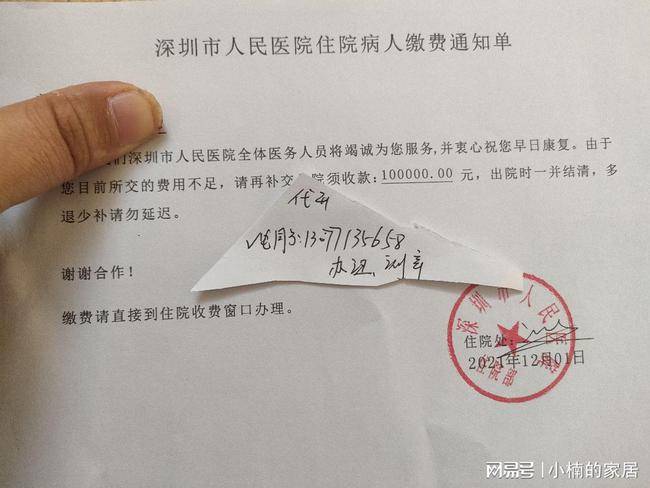 深圳市人民医院住院病人缴费通知单
们深圳市人民医院全体医务人员将竭诚为您服务,并衷心祝您早日康复。由于
您目前所交的费用不足，请再补交 院须收款:100000.00 元，出院时一并结清，多
退少补请勿延迟。
代开
电同分:13 77135658
办证、刻章
谢谢合作！
缴费请直接到住院收费窗口办理。
深圳市人民医院
住院处:
2021年12月01日
网易号 | 小楠的家居